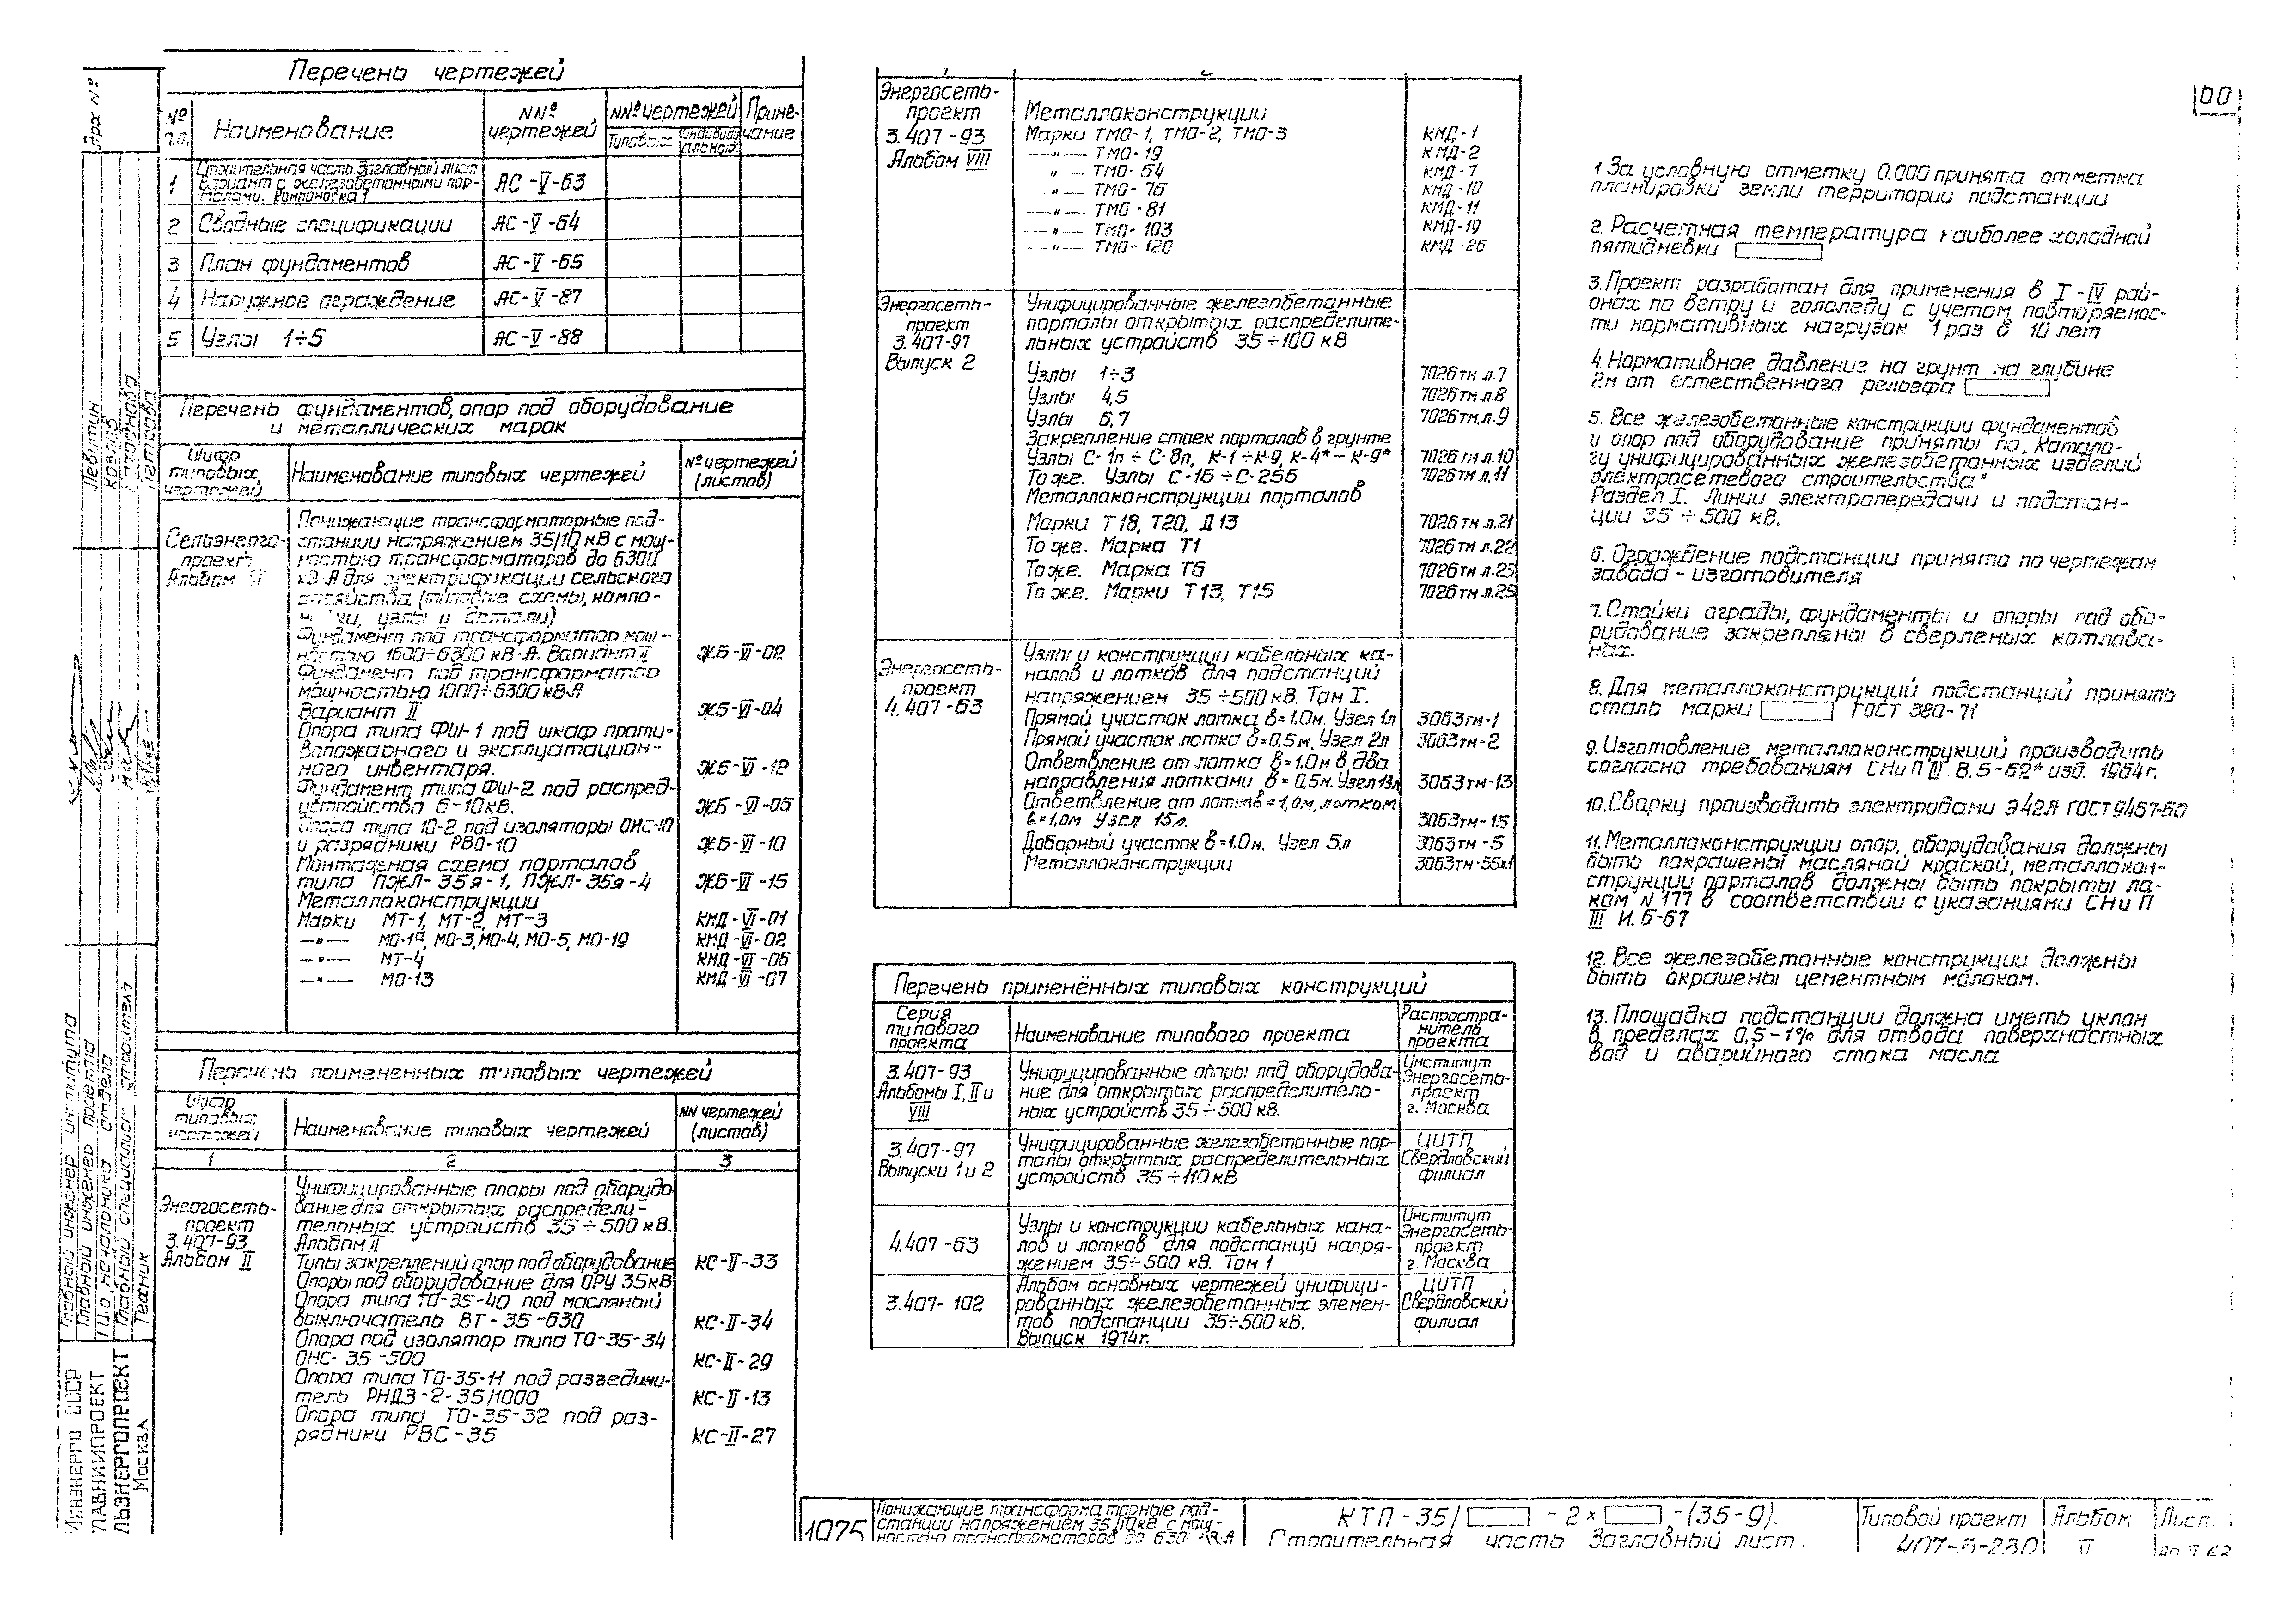 Перечень чертежей
№ п.п.
Наименование
NN° чертежей
NN° чертежей
Типовых
индивидуальных
Примечание
1
Строительная часть. Заглавный лист
Вариант с железобетонными пор-
талами. Компоновка 1
АС-V-63
2 Сводные спецификации АС-V-64
3 План фундаментов АС-V-65
4 Наружное ограждение АС-V-87
5 Узлы 1÷5 АС-V-88
Перечень фундаментов, опор под оборудование
и металлических марок
Шифр
типовых
чертежей
Наименование типовых чертежей
№ чертежей
(листов)
Сельэнерго-
проект
Альбом
Понижающие трансформаторные под-
станции напряжением 35/10 кВ с мощ-
ностью трансформаторов до 6300
кВ·А для электрификации сельского
хозяйства (типовые схемы, компо-
узлы и детали)
Фундамент под трансформатор мощ-
ностью 1600÷6300 кВ·А. Вариант II ЖБ-VI-02
Фундамент под трансформатор
мощностью 1000÷6300 кВ·А
Вариант II ЖБ-VI-04
Опора типа ФШ-1 под шкаф проти-
вопожарного и эксплуатацион-
ного инвентаря. ЖБ-VI-12
Фундамент типа ФШ-2 под распред-
устройство 6-10кВ. ЖБ-VI-05
Опора типа 10-2 под изоляторы ОНС-10
и разрядники РВО-10 ЖБ-VI-10
Монтажная схема порталов
типа ПЖЛ-35я-1, ПЖЛ-35я-4 ЖБ-VI-15
Металлоконструкции
Марки МТ-1, МТ-2, МТ-3 КМД-VI-01
—"— МО-1а, МО-3, МО-4, МО-5, МО-19 КМД-VI-02
—"— МТ-4 КМД-VI-06
—"— МО-13 КМД-VI-07
Перечень примененных типовых чертежей
Шифр
типовых
чертежей
Наименование типовых чертежей
NN чертежей
(листов)
1 2 3
Энергосеть-
проект
3.407-93
Альбом II
Унифицированные опоры под оборудо-
вание для открытых распредели-
тельных устройств 35÷500 кВ.
Альбом II
Типы закреплений опор под оборудование КС-II-33
Опоры под оборудование для ОРУ 35кВ
Опора типа ТО-35-40 под масляный
выключатель ВТ-35-630 КС-II-34
Опора под изолятор типа ТО-35-34
ОНС-35-500 КС-II-29
Опора типа ТО-35-11 под разъедини-
тель РНДЗ-2-35/1000 КС-II-13
Опора типа ТО-35-32 под раз-
рядники РВС-35 КС-II-27
Энергосеть-
проект
3.407-93
Альбом VIII
Металлоконструкции
Марки ТМО-1, ТМО-2, ТМО-3 КМД-1
—"— ТМО-19 КМД-2
—"— ТМО-64 КМД-7
—"— ТМО-76 КМД-10
—"— ТМО-81 КМД-11
—"— ТМО-103 КМД-19
—"— ТМО-120 КМД-26
Энергосеть-
проект
3.407-97
Выпуск 2
Унифицированные железобетонные
порталы открытых распределите-
льных устройств 35÷100 кВ
Узлы 1÷3 7026тм л.7
Узлы 4,5 7026тм л.8
Узлы 6,7 7026тм.л.9
Закрепление стоек порталов в грунте
Узлы С-1п ÷ С-8п, К-1÷К-9, К-4*—К-9* 7026тм л.10
То же. Узлы С-16÷С-256 7026тм л.11
Металлоконструкции порталов
Марки Т18, Т20, Д13 7026тм л.21
То же. Марка Т1 7026тм л.22
То же. Марка Т6 7026тм л.25
То же. Марки Т13, Т15 7026тм л.25
Энергосеть-
проект
4.407-63
Узлы и конструкции кабельных ка-
налов и лотков для подстанций
напряжением 35÷500 кВ. Том I.
Прямой участок лотка в=1.0м. Узел 1л 3063тм-1
Прямой участок лотка в=0,5м. Узел 2л 3063тм-2
Ответвление от лотка в=1.0м в два
направления лотками в=0,5м. Узел 13л 3063тм-13
Ответвление от лотка в=1,0м, лотком
в=1,0м. Узел 15л. 3063тм-15
Доборный участок в=1.0м. Узел 5л 3063тм-5
Металлоконструкции 3063тм-55л1
Перечень применённых типовых конструкций
Серия
типового
проекта
Наименование типового проекта
Распростра-
нитель
проекта
3.407-93
Альбомы I, II и
VIII
Унифицированные опоры под оборудова-
ние для открытых распределитель-
ных устройств 35÷500 кВ.
Институт
Энергосеть-
проект
г. Москва
3.407-97
Выпуски 1 и 2
Унифицированные железобетонные пор-
талы открытых распределительных
устройств 35÷110 кВ
ЦИТП
Свердловский
филиал
4.407-63
Узлы и конструкции кабельных кана-
лов и лотков для подстанций напря-
жением 35÷500 кВ. Том 1
Институт
Энергосеть-
проект
г. Москва
3.407-102
Альбом основных чертежей унифици-
рованных железобетонных элемен-
тов подстанции 35÷500 кВ.
Выпуск 1974г.
ЦИТП
Свердловский
филиал
1 За условную отметку 0.000 принята отметка
планировки земли территории подстанции
2. Расчетная температура наиболее холодной
пятидневки
3. Проект разработан для применения в I-IV рай-
онах по ветру и гололеду с учетом повторяемос-
ти нормативных нагрузок 1 раз в 10 лет
4. Нормативное давление на грунт на глубине
2м от естественного рельефа
5. Все железобетонные конструкции фундаментов
и опор под оборудование приняты по „Катало-
гу унифицированных железобетонных изделий
электросетевого строительства"
Раздел I. Линии электропередачи и подстан-
ции 35÷500 кВ.
6. Ограждение подстанции принято по чертежам
завода-изготовителя
7. Стойки ограды, фундаменты и опоры под обо-
рудование закреплены в сверленых котлова-
нах.
8. Для металлоконструкций подстанций принять
сталь марки ГОСТ 380-71
9. Изготовление металлоконструкций производить
согласно требованиям СНиП III В.5-62* изд. 1964г.
10. Сварку производить электродами Э42А ГОСТ 9467-60
11. Металлоконструкции опор, оборудования должны
быть покрашены масляной краской, металлокон-
струкции порталов должны быть покрыты ла-
ком N 177 в соответствии с указаниями СНиП
III И.6-67
12. Все железобетонные конструкции должны
быть окрашены цементным молоком.
13. Площадка подстанции должна иметь уклон
в пределах 0,5-1% для отвода поверхностных
вод и аварийного стока масла
Арх №
Левитин
Козлов
Главный инженер института
Главный инженер проекта
И.о. начальника отдела
Главный специалист строитель
Техник
Минэнерго СССР
ГЛАВНИИПРОЕКТ
ЛЬЭНЕРГОПРОЕКТ
Москва
1975
Понижающие трансформаторные под-
станции напряжением 35/10кВ с мощ-
ностью трансформаторов до 630
КТП-35/ -2× -(35-9).
Строительная часть Заглавный лист.
Типовой проект
407-3-230
Альбом
Лист